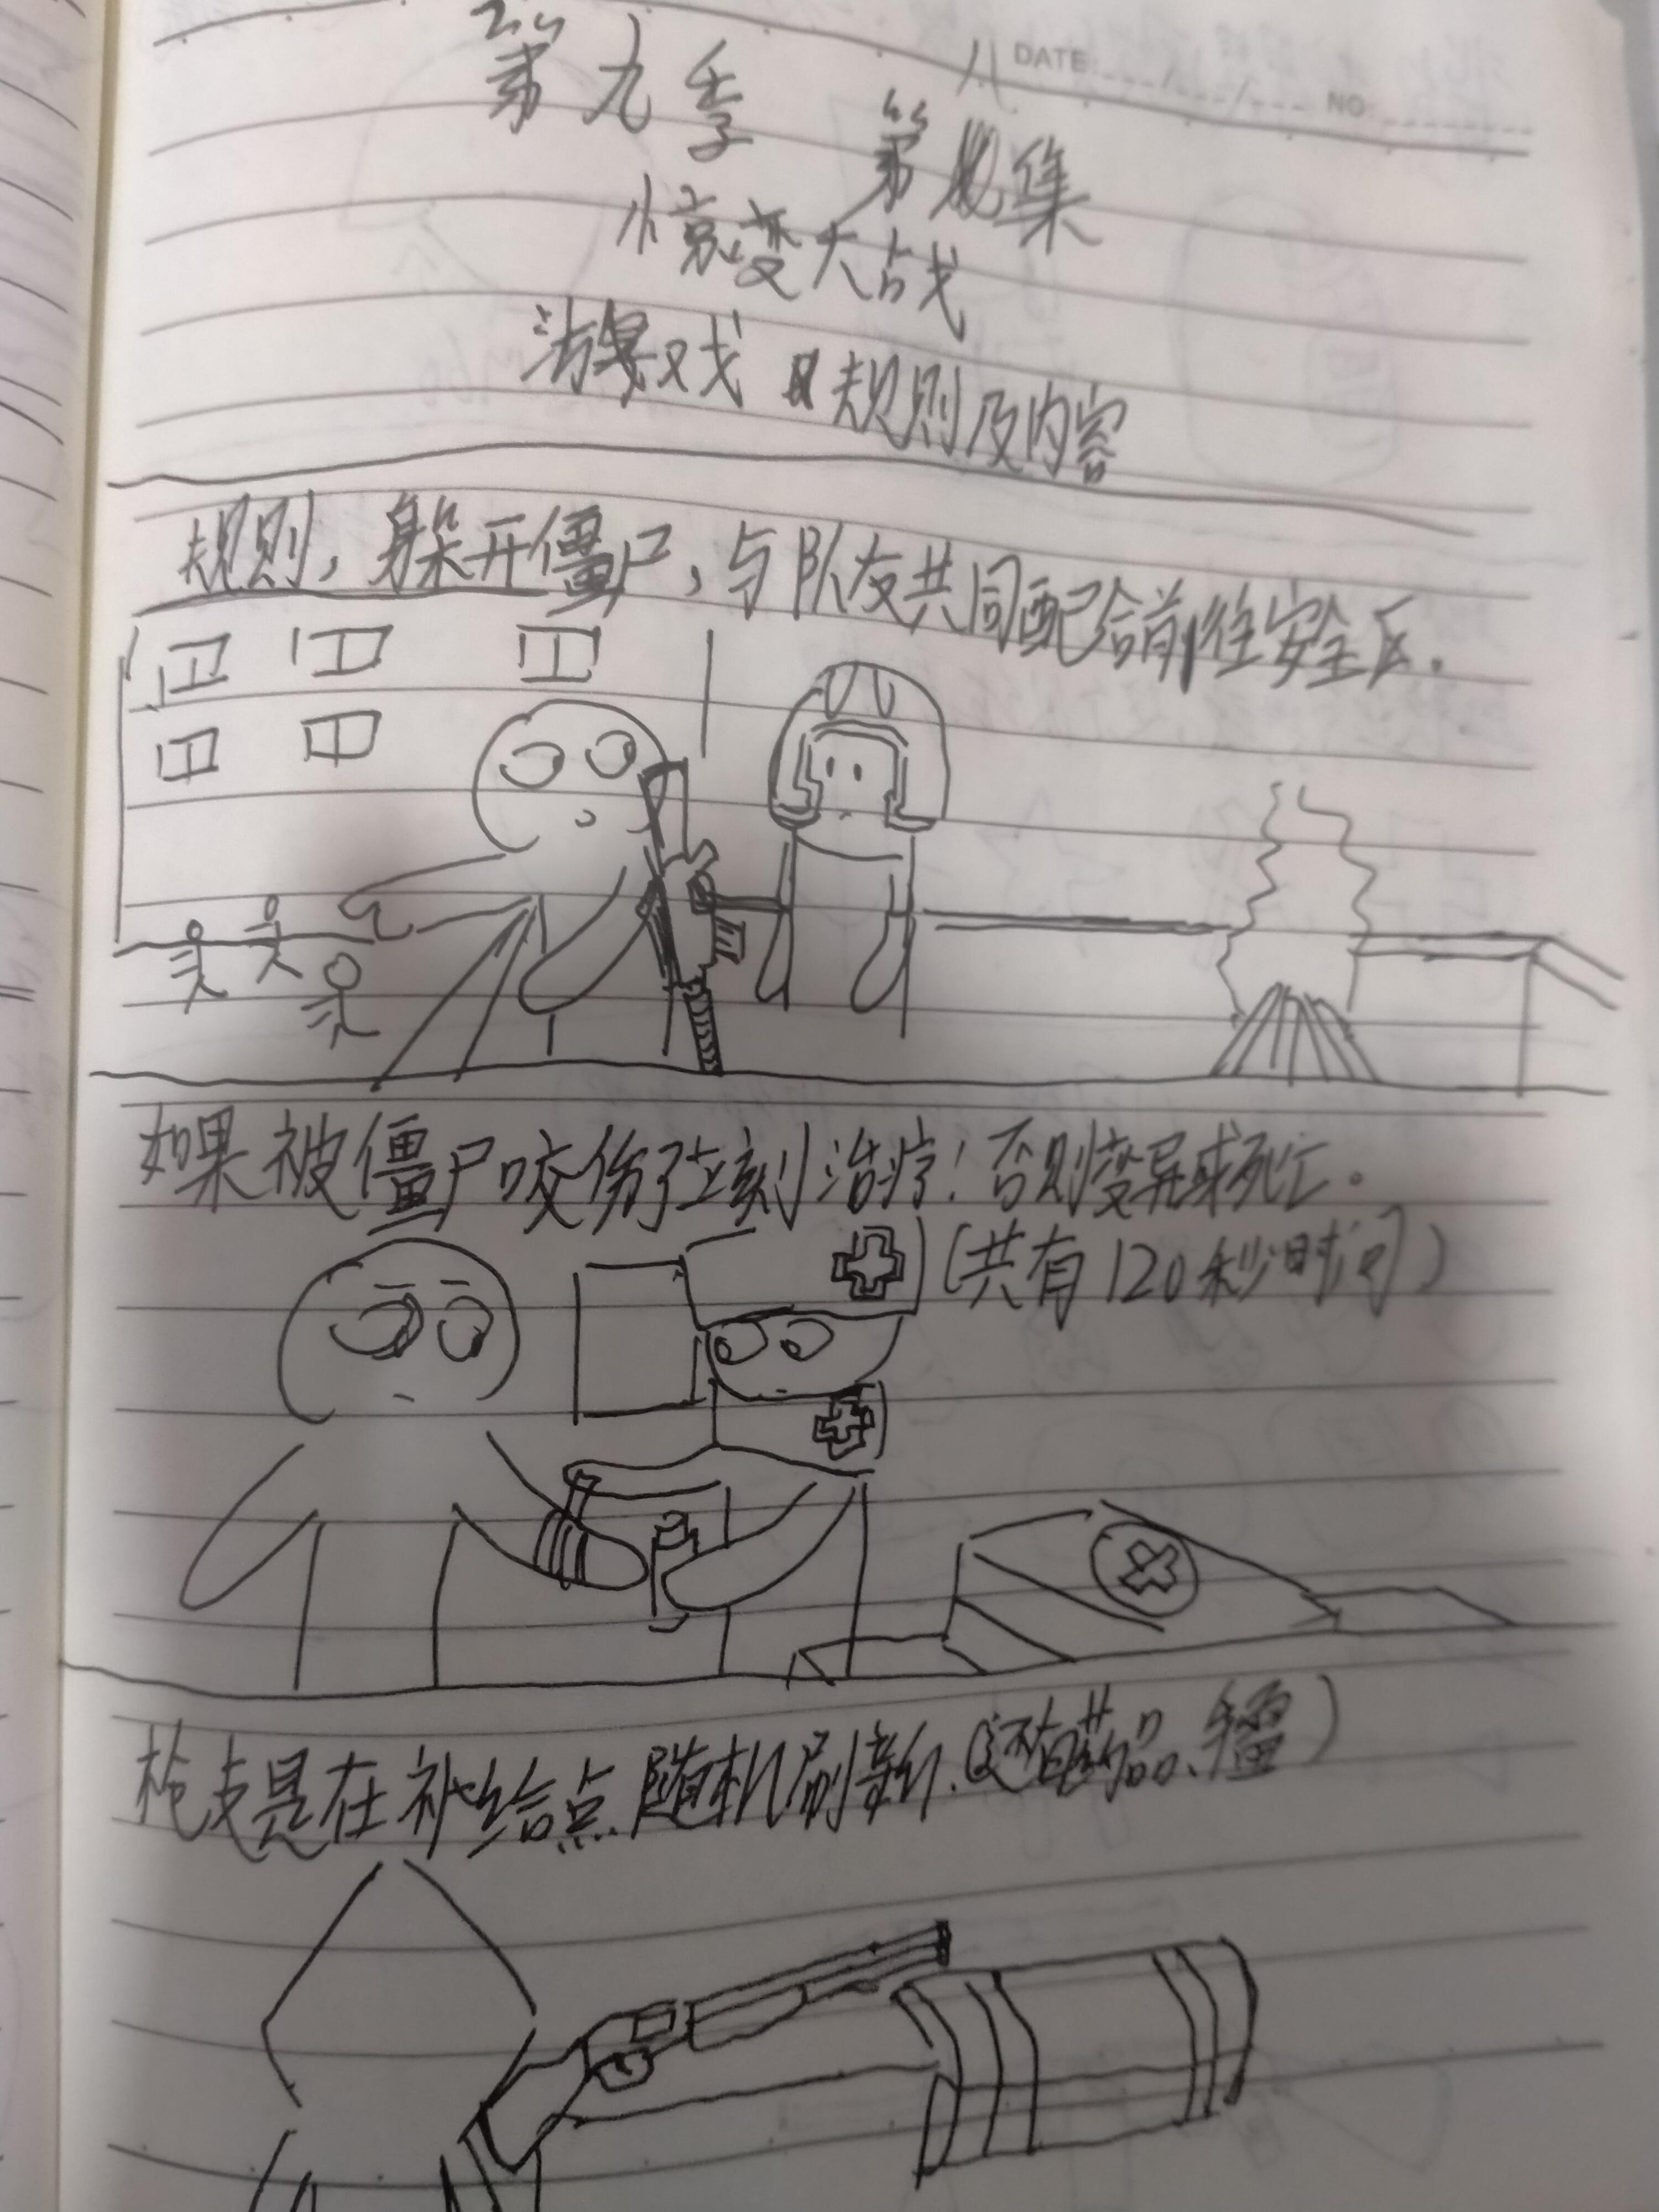 DATE: NO
第九季 第八集
惊变大战
游戏规则及内容
规则，躲开僵尸，与队友共同配合前往安全区.
如果被僵尸咬伤了立刻治疗！否则变异或死亡。
（共有120秒时间）
枪支是在补给点随机刷新.（还有药品、手雷）